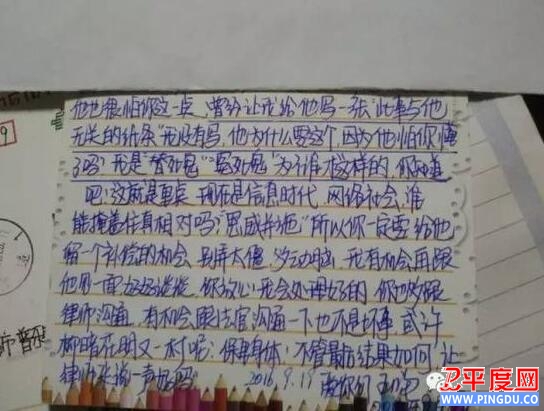 他也很怕你这一点,曾经让我给他写一张"此事与他
无关的纸条"我没有写,他为什么要这个,因为他怕,你懂
了吗!我是"替死鬼""冤死鬼"为了谁才这样的,你知道
吧!这就是重点 现在是信息时代 网络社会,谁
能掩盖住真相对吗!"恩威并施"所以你一定要给他
留一个补偿的机会 别弄太僵 多动脑,我有机会再跟
他见一面好好谈谈,你放心,我会处理好的,你也多跟
律师沟通,有机会跟法官沟通一下也不是坏事 或许
柳暗花明又一村呢;保重身体;不管最后结果如何,让
律师来说一声好吗! 2016.9.19 爱你们
平度网
WWW.PINGDU.CO
9